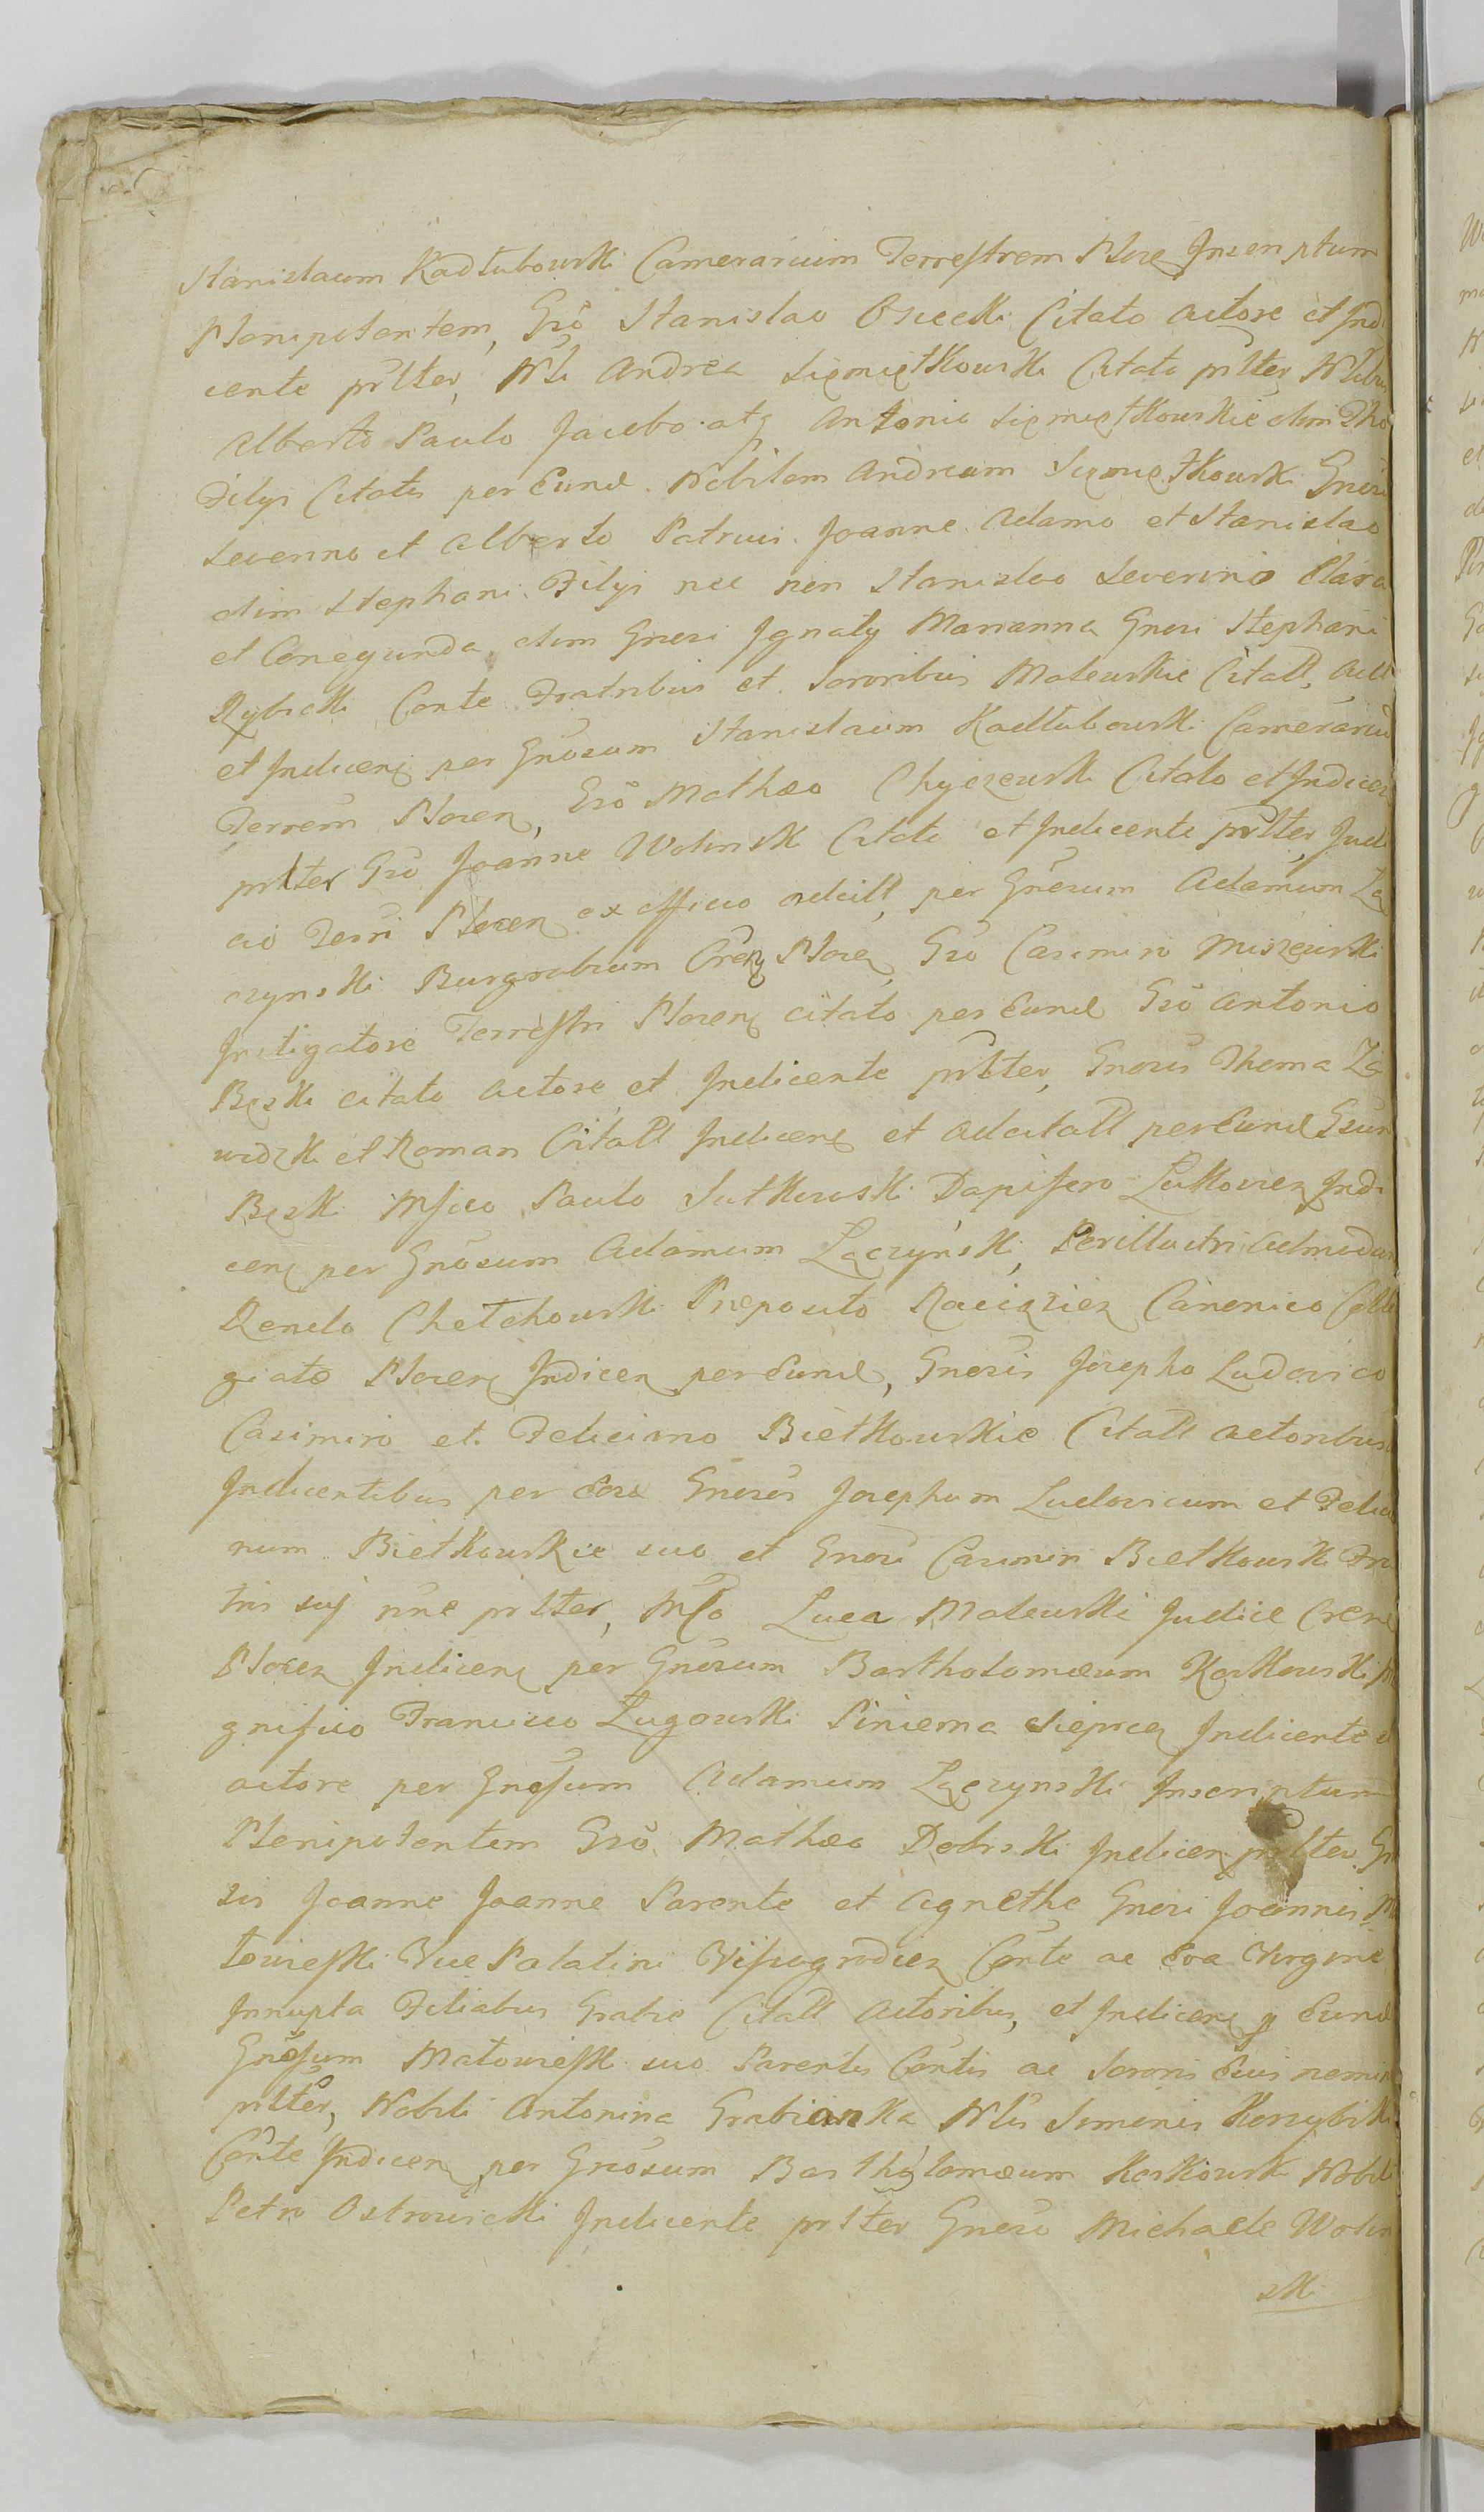 Stanislaum Kadłubowski Camerarium Terrestrem Plocę Inscriptum
Plenipotentem, Gsō Stanislao Osiecki Citato actore et Indi
cente pr̄lter, Nli Andrea Siemiętkowski Citato pr̄lter Nlibus
Alberto Paulo Jacobo atq Antonio Siemiętkowskie olim
Filys Citatis per Eund Nobilem Andream Siemiętkowski Gnosi
Severino et Alberto Patruis Joanne Adamo et Stanislao
olim Stephani Filys nec non Stanislao Severino Clara
et Conegunda olim Gnosi Ignaty Marianna Gnosi Stephani
Rybicki Conte Fratribus et Sororibus Malewskie Citatt, Actt
et Indicenę per Gnosum Stanislaum Kadłubowski Camerariū
Terrem Plocen, Gsō Mathæo Chyczewski Citato et Indicen
prlter Gsō Joanne Wolinski Citato et Indicente pr̄lter, Judi
cio Terri Plocen ex officio adcitt, per Gnosum Adamum Łą
czynski Burgrabium Cren Plocen, Gsō Casimiro Miszewski
Instigatore Terrestri Plocenę citato per Eund Gsō Antonio
Bęski citato actore et Indicente pr̄lter, Gnosis Thoma Za
widzki et Roman Citatt Indicenę et adcitatt per Eund Gsum
Bęski Mfico Paulo Sutkowski Dapifero Łukovien Indi
cenę per Gnosum Adamum Łączyński, Perillustri admodum
Rendo Chełchowski Præposito Raciązien Canonico Colle
giatæ Plocenę Indicen per Eund, Gnosis Josepho Ludovico
Casimiro et Feliciano Bietkowskie Citatt actoribus
Indicentibus per Eosd Gnosos Josephum Ludovicum et Felicia
num Bietkowskie suo et Gnosi Casimiri Bietkowski Fra
tris sui nne pr̄lter, Mfco Luca Malewski Judice Cren
Plocen Indicenę per Gnosum Bartholomæum Koskowski Ma
gnifico Francisco Zugowski Pincerna Sieprcen Indicente et
actore per Gnosum Adamum Łączynski Inscriptum
Plenipotentem Gsō Mathæo Dobrski Indicen prlter Gn
sis Joanne Joanne Parente et Agnethe Gnosi Joannis Ma
towieski Vice Palatini Visnogrodien Conte ac Eva Virgine
Innupta Filiabus Grabie Citatt Actoribus, et Indicenę p Eund
Gnosum Matowieski suo Parentis Contis ac Sororis Eius nomine
prlter, Nobili Antonina Grabianka Nlis Simonis Korzybski
Conte Indicen per Gnosum Bartholomæum Koskowski Nobili
Petro Ostrowicki Indicente prlter Gnoso Michaele Wolin
ski